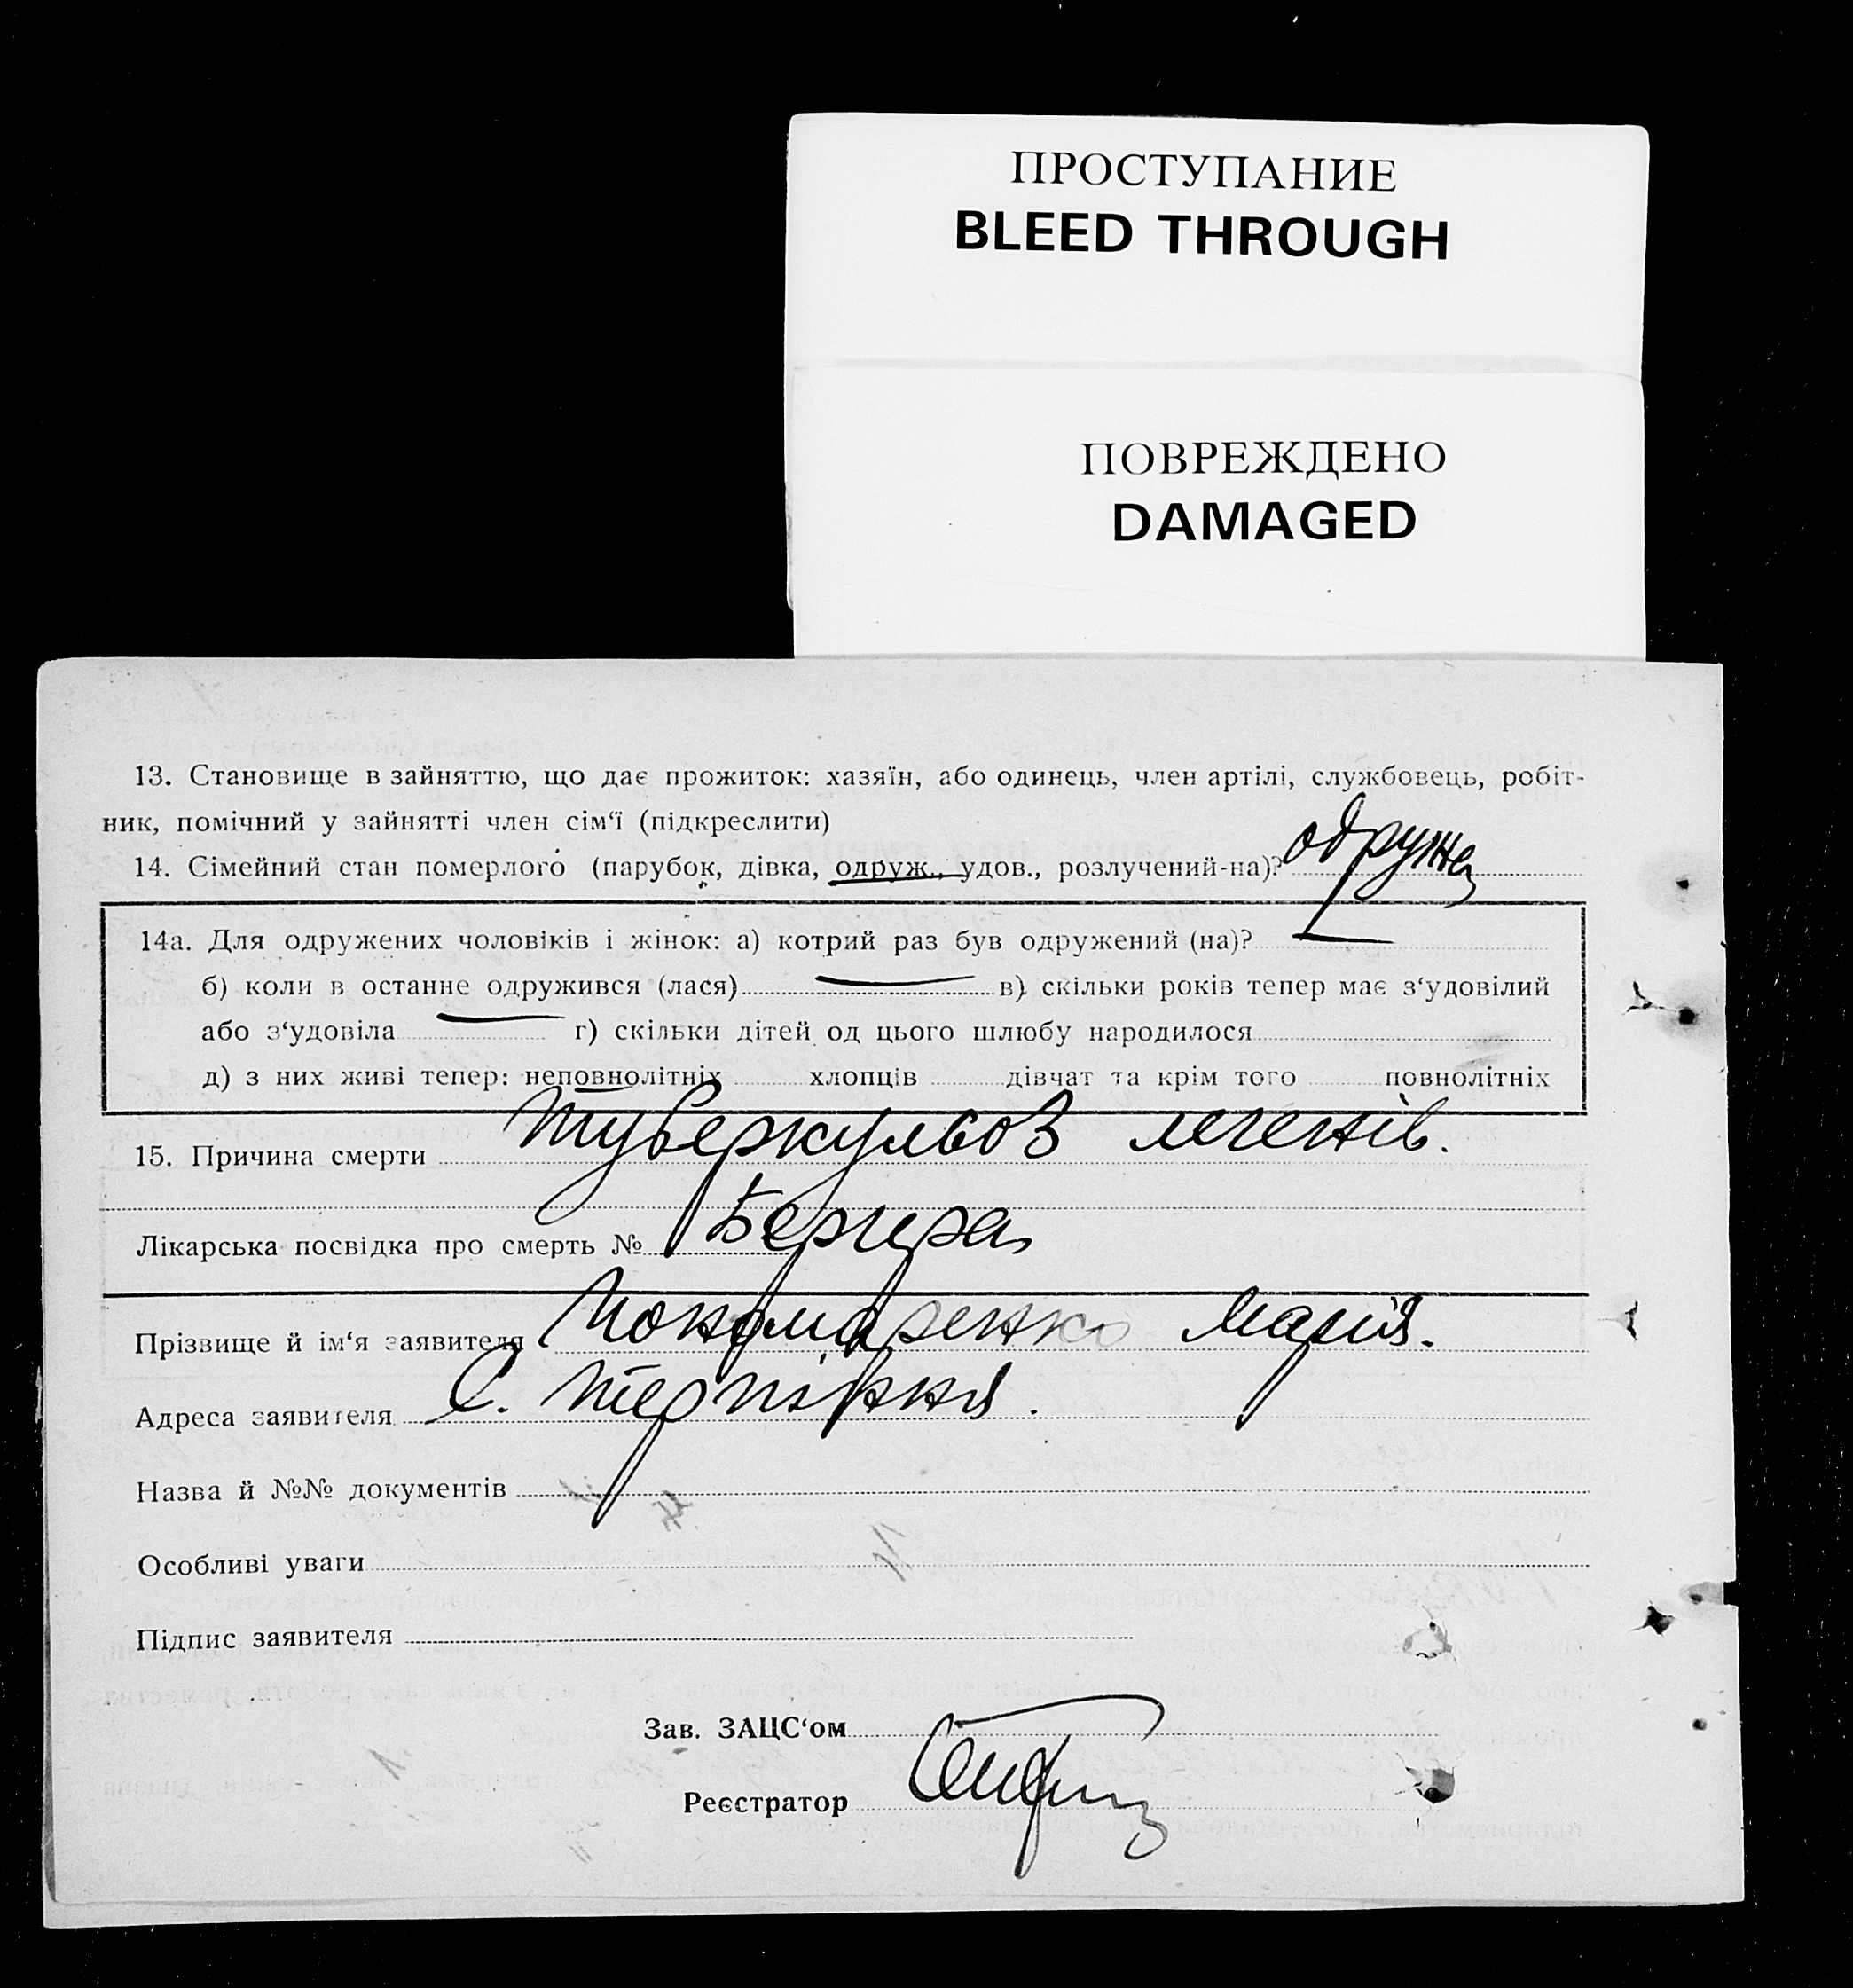 ПРОСТУПАНИЕ
BLEED THROUGH
ПОВРЕЖДЕНО
DAMAGED
13. Становище в зайняттю, що дає прожиток: хазяїн, або одинець, член артілі, службовець, робіт-
ник, помічний у зайнятті член сім‘ї (підкреслити)
14. Сімейний стан померлого (парубок, дівка, одруж., удов., розлучений-на)? одружен
14а. Для одружених чоловіків і жінок: а) котрий раз був одружений (на)?
б) коли в останнє одружився (лася) — в) скільки років тепер має з‘удовілий
або з‘удовіла — г) скільки дітей од цього шлюбу народилося
д) з них живі тепер: неповнолітніх хлопців дівчат та крім того повнолітніх
15. Причина смерти туберкульоз легенів.
Лікарська посвідка про смерть №
Прізвище й ім‘я заявителя Пономаренко Марія.
Адреса заявителя С. Терпіння.
Назва й №№ документів
Особливі уваги
Підпис заявителя
Зав. ЗАЦС‘ом
Реєстратор